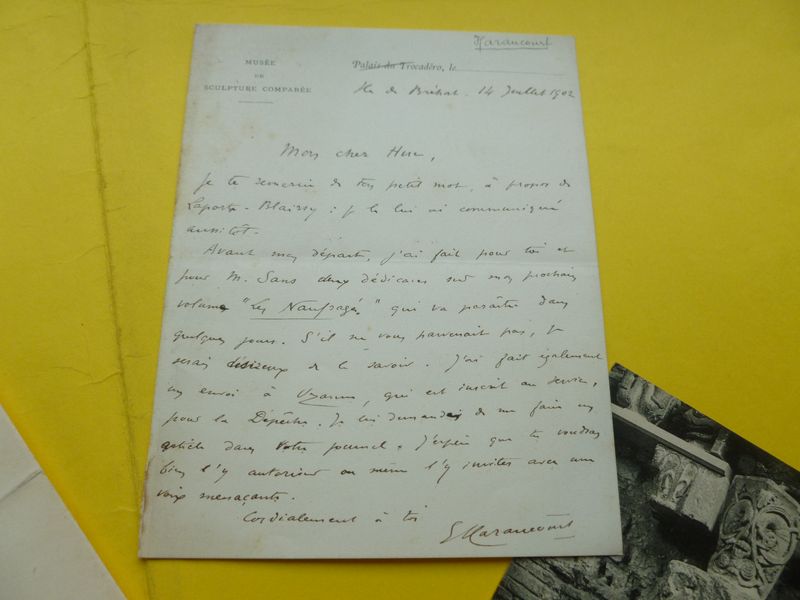 Haraucourt
MUSÉE
DE
SCULPTURE COMPARÉE
Palais du Trocadéro, le
Ile de Bréhat. 14 Juillet 1902
Mon cher Huc,
Je te remercie de ton petit mot, à propos de
Laporte-Blairsy : je le lui ai communiqué
aussitôt.
Avant mon départ, j'ai fait pour toi et
pour M. Sans deux dédicaces sur mon prochain
volume "Les Naufragés" qui va paraître dans
quelques jours. S'il ne vous parvenait pas, je
serais désireux de le savoir. J'ai fait également
un envoi à, qui est inscrit au service,
pour la Dépêche. Je lui demandais de me faire un
article dans votre journal. J'espère que tu voudras
bien l'y autoriser ou même l'y inviter avec une
voix menaçante.
Cordialement à toi
E Haraucourt